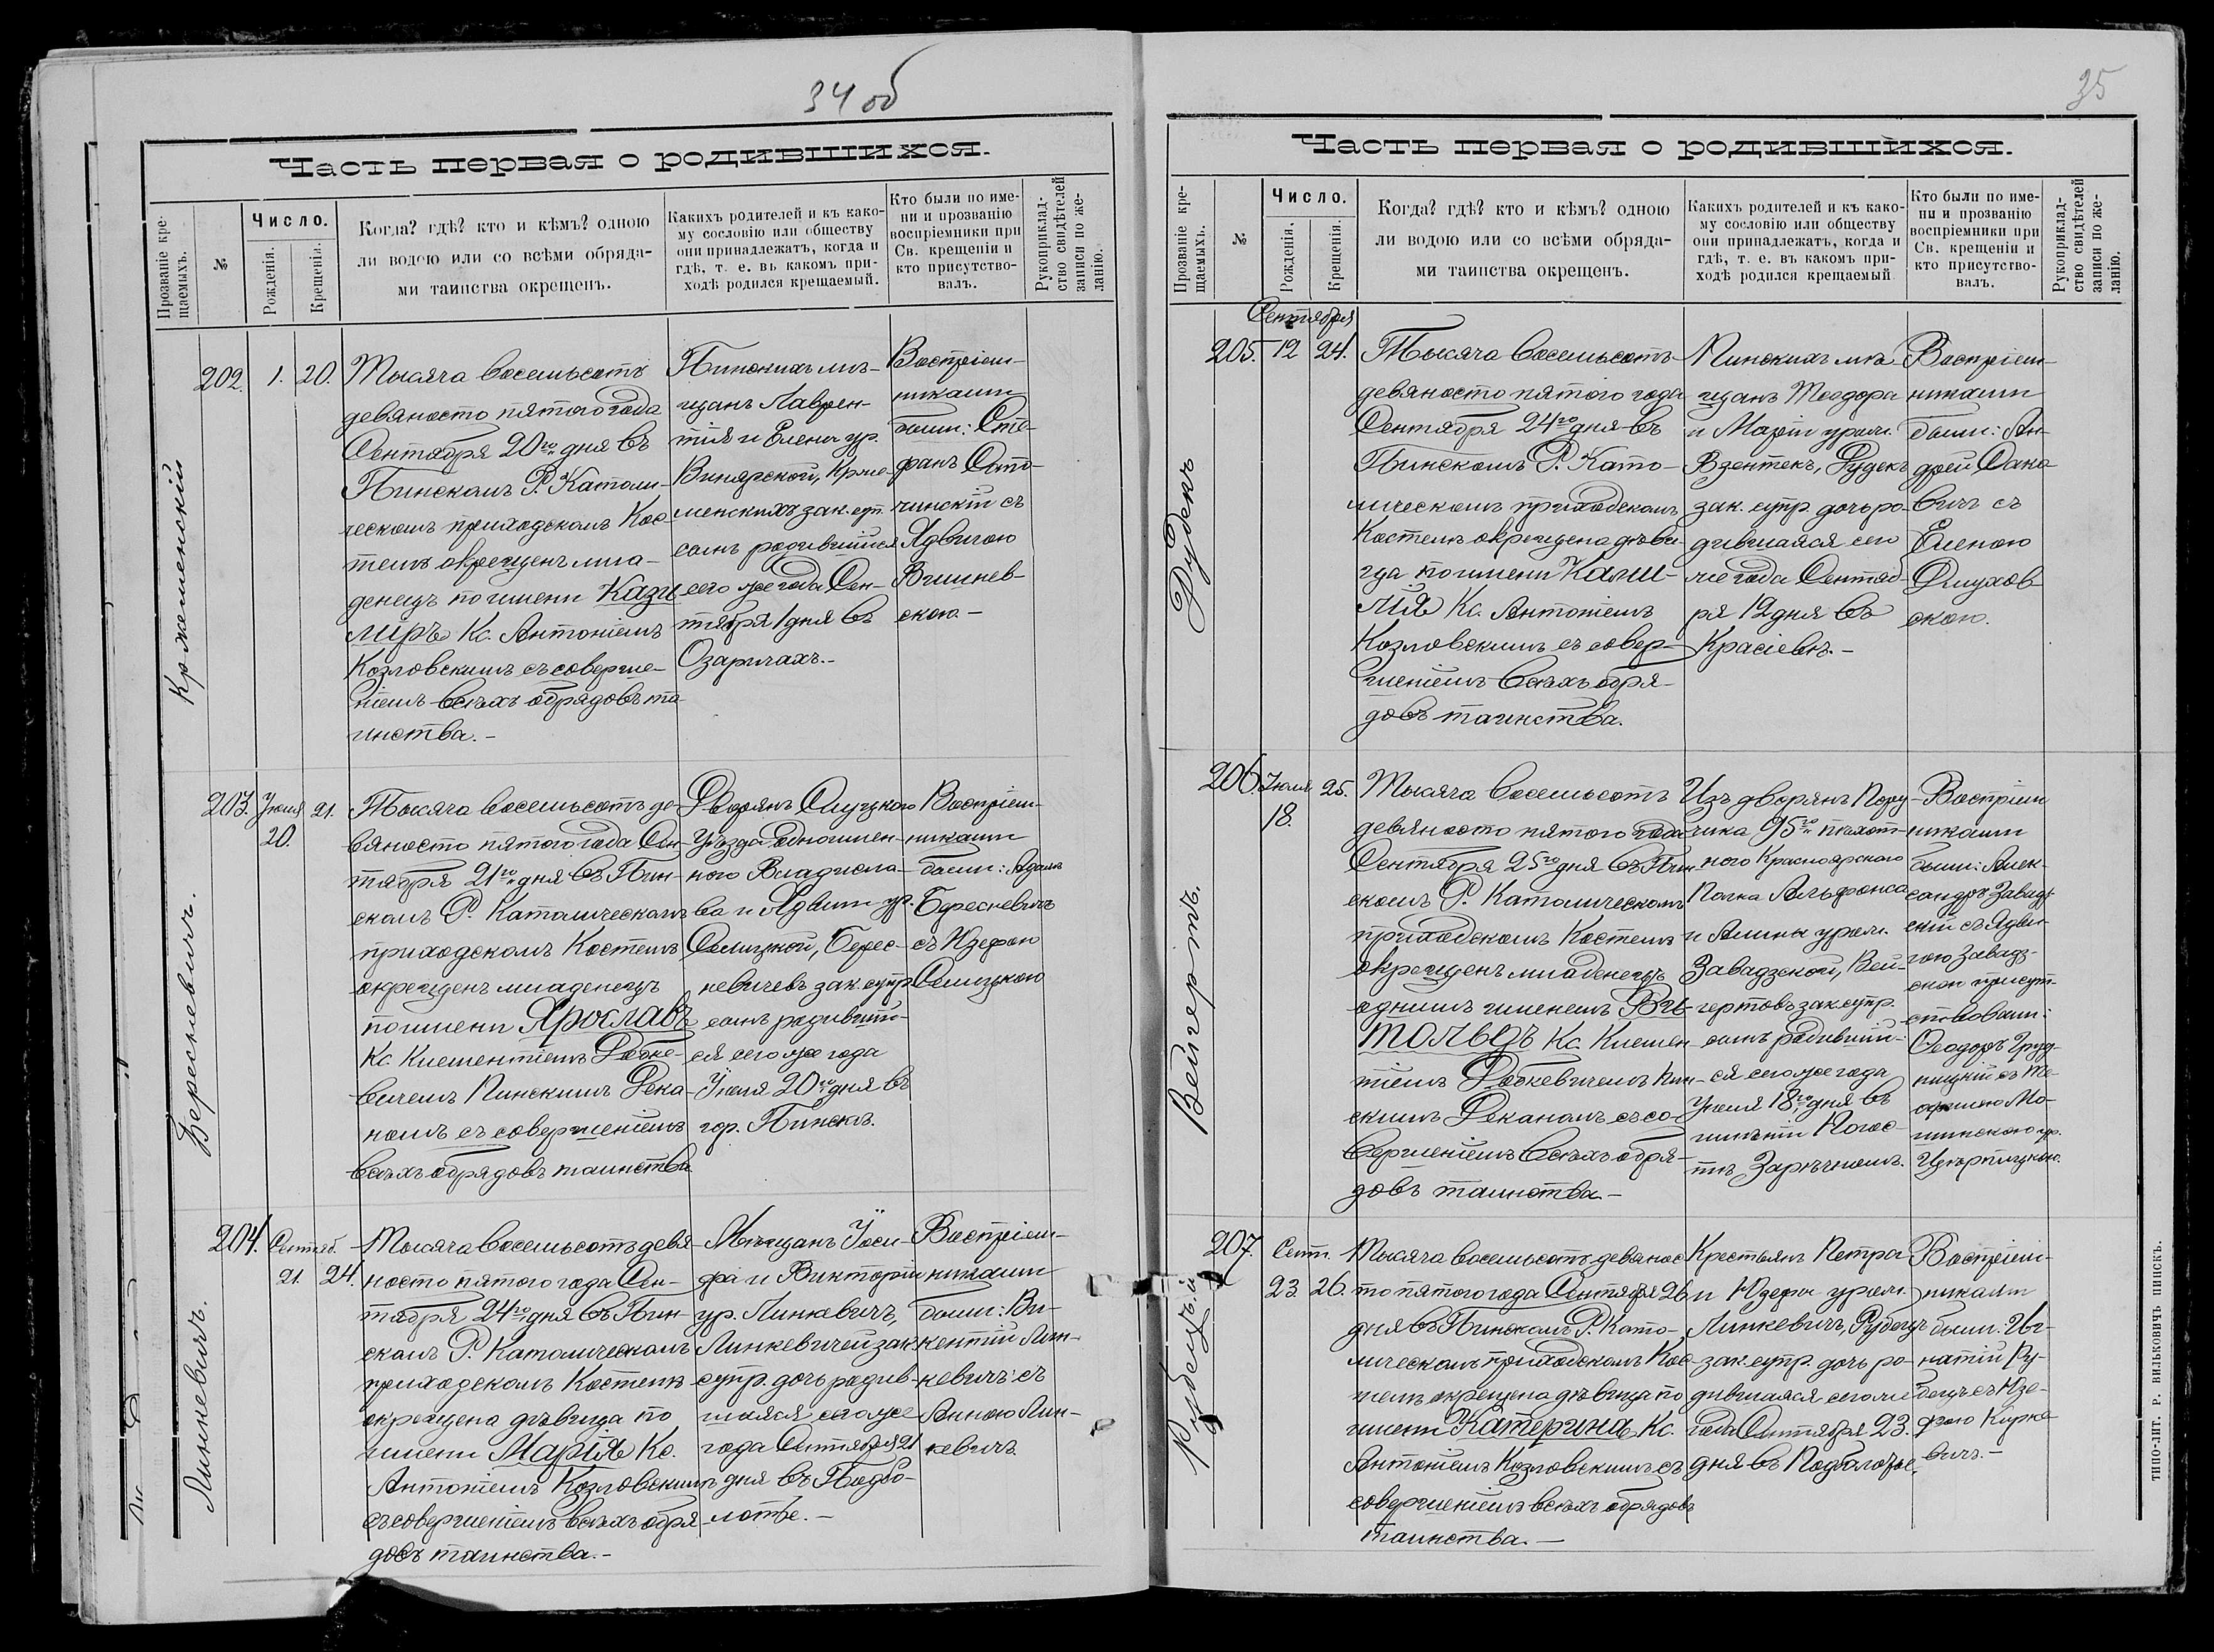 34 об
Часть первая о родившихся.
Прозваніе кре-
щаемыхъ.
№
Число.
Рожденія.
Крещенія.
Когда? гдѣ? кто и кѣмъ? одною
ли водою или со всѣми обряда-
ми таинства окрещенъ.
Какихъ родителей и къ како-
му сословію или обществу
они принадлежатъ, когда и
гдѣ, т. е. въ какомъ при-
ходѣ родился крещаемый.
Кто были по име-
ни и прозванію
воспріемники при
Св. крещеніи и
кто присутство-
валъ.
Рукоприклад-
ство свидѣтелей
записи по же-
ланію.
Кржеменскій
202. 1. 20.
Тысяча восемьсотъ
девяносто пятого года
Сентября 20го дня въ
Пинскомъ Р. Католи-
ческомъ приходскомъ Кос-
телѣ окрещенъ мла-
денецъ по имени Кази
міръ Кс. Антоніемъ
Козловскимъ съ соверше-
ніемъ всѣхъ обрядовъ та
инства.-
Пинскихъ мѣ-
щанъ Лаврен-
тія и Елены ур.
Винярской, Крже-
менскихъ зак. суп.
сынъ родившійся
сего же года Сен-
тября 1 дня въ
Озаричахъ.-
Воспріем-
никами
были: Сте-
фанъ
чинскій съ
Ядвигою
Вишнев-
скою.-
Вересневичъ.
203. Іюня 21.
20.
Тысяча восемьсотъ де-
вяносто пятого года Сен
тября 21го дня въ Пин-
скомъ Р. Католическомъ
приходскомъ Костелѣ
окрещенъ младенецъ
по имени Ярославъ
Кс. Клементіемъ
вичемъ Пинскимъ Дека-
номъ съ совершеніемъ
всѣхъ обрядовъ таинства
Дворянъ Слуцкаго
уѣзда
ного Владисла-
ва и Ядвиги ур.
Селицкой, Берес-
невичевъ зак. супр.
сынъ родившій-
ся сего же года
Іюня 20го дня въ
гор. Пинскѣ.
Воспріем-
никами
были: Адамъ
Бересневичъ
съ Юзефою
Селицкою
Линкевичъ.
204. Сентяб.
21. 24.
Тысяча восемьсотъ девя-
носто пятого года Сен-
тября 24го дня въ Пин-
скомъ Р. Католическомъ
приходскомъ Костелѣ
окрещена дѣвица по
имени Марія Кс.
Антоніемъ Козловскимъ
съ совершеніемъ всѣхъ обря
довъ таинства.-
Мѣщанъ Іоси-
фа и Викторіи
ур. Линкевичъ,
Линкевичей зак.
супр. дочь родив-
шаяся сего же
года Сентября 21
дня въ Подбо-
лотье.-
Воспріем-
никами
были: Ви-
кентій Лин-
кевичъ съ
Анною Лин-
кевичъ.
35
Часть первая о родившихся.
Прозваніе кре-
щаемыхъ.
№
Число.
Рожденія.
Крещенія.
Когда? гдѣ? кто и кѣмъ? одною
ли водою или со всѣми обряда-
ми таинства окрещенъ.
Какихъ родителей и къ како-
му сословію или обществу
они принадлежатъ, когда и
гдѣ, т. е. въ какомъ при-
ходѣ родился крещаемый
Кто были по име-
ни и прозванію
воспріемники при
Св. крещеніи и
кто присутство-
валъ.
Рукоприклад-
ство свидѣтелей
записи по же-
ланію.
Сентября
205. 12 24.
Тысяча восемьсотъ
девяносто пятого года
Сентября 24го дня въ
Пинскомъ Р. Като-
лическомъ приходскомъ
Костелѣ окрещена дѣви-
ца по имени Камил-
лія Кс. Антоніемъ
Козловскимъ съ совер-
шеніемъ всѣхъ обря-
довъ таинства.
Пинскихъ мѣ-
щанъ Теодора
и Маріи урож.
зак. супр. дочь ро-
дившаяся сего
же года Сентяб-
ря 12 дня въ
Красіевѣ.-
Воспріем-
никами
были: Ан-
дрей
вичъ съ
Еленою
скою.
Вейгертъ.
206. Іюля 25.
18.
Тысяча восемьсотъ
девяносто пятого года
Сентября 25го дня въ Пин
скомъ Р. Католическомъ
приходскомъ Костелѣ
окрещенъ младенецъ
однимъ именемъ Ви-
тольдъ Кс. Клемен
тіемъ Пин-
скимъ Деканомъ съ со-
вершеніемъ всѣхъ обря-
довъ таинства.-
Изъ дворянъ Пору-
чика 95го пѣхот-
ного Красноярскаго
Полка Альфонса
и Алины урож.
Завадзской, Вей-
гертовъ зак. супр.
сынъ родившій-
ся сего же года
Іюля 18го дня въ
имѣніи Погос-
тѣ Зарѣчномъ.
Воспріем
никами
были: Алек-
сандръ Завадз-
скій съ Ядви-
гою Завадз-
скою присут-
ствовали:
Ѳеодоръ
ницкій съ
Рубецъ
207. Сент.
23 26.
Тысяча восемьсотъ девянос
то пятого года Сентября 26
дня въ Пинскомъ Р. Като-
лическомъ приходскомъ Кос-
телѣ окрещена дѣвица по
имени Катерина Кс.
Антоніемъ Козловскимъ съ
совершеніемъ всѣхъ обрядовъ
таинства.-
Крестьянъ Петра
и Юзефы урож.
Линкевичъ, Рубецъ
зак. супр. дочь ро-
дившаяся сего же
года Сентября 23.
дня въ Подболотье.
Воспріем-
никами
были: Иг-
натій Ру-
бецъ съ Юзе-
фою Кирке
вичъ.-
ТИПО-ЛИТ. Р. ВИЛЬКОВИЧЪ ПИНСКЪ.